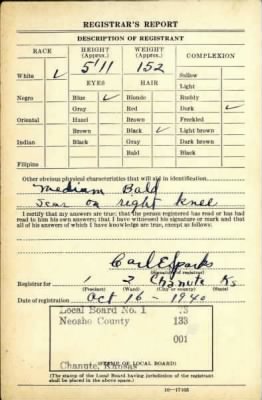 REGISTRAR'S REPORT
DESCRIPTION OF REGISTRANT
RACE HEIGHT (Approx.) WEIGHT (Approx.) COMPLEXION
5'11 152
White ✓ Sallow
EYES HAIR Light
Negro Blue ✓ Blonde Ruddy
Gray Red Dark ✓
Oriental Hazel Brown Freckled
Brown Black ✓ Light brown
Indian Black Gray Dark brown
Bald Black
Filipino
Other obvious physical characteristics that will aid in identification
Medium Bald
Scar on right Knee
I certify that my answers are true; that the person registered has read or has had
read to him his own answers; that I have witnessed his signature or mark and that
all of his answers of which I have knowledge are true, except as follows:
Carl E Sparks
(Signature of registrar)
Registrar for 1 3 Chanute Ks
(Precinct) (Ward) (City or county) (State)
Date of registration Oct 16 - 1940
Local Board No. 1 75
Neosho County 133
001
Chanute, Kansas
(STAMP OF LOCAL BOARD)
(The stamp of the Local Board having jurisdiction of the registrant
shall be placed in the above space.)